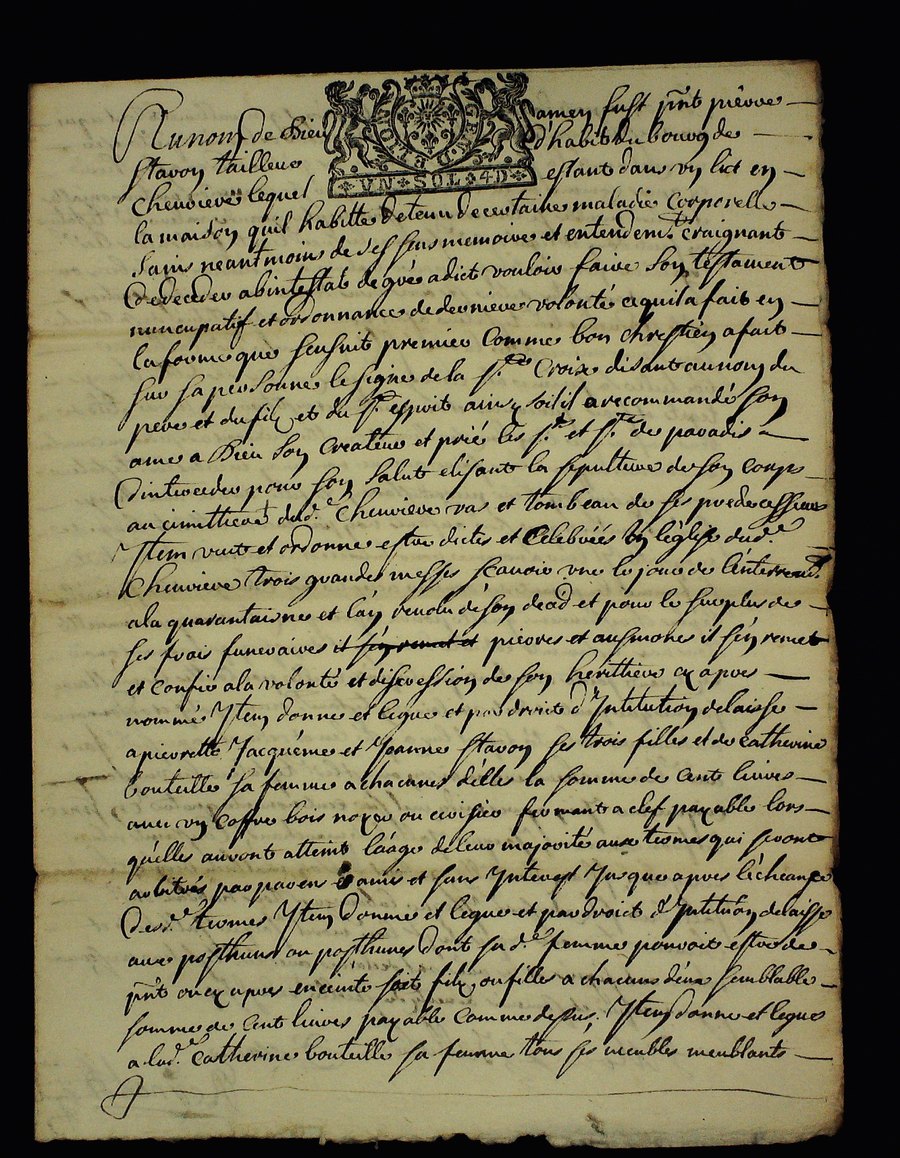 Au nom de Dieu amen fust pnt pierre
Stavon tailleur d'habit du bourg de
Chenviere lequel estant dans un lict en
VN SOL 4D
la maison quil habitte detenu de certaine maladie corporelle
sains neantmoins de ses sens memoire et entendemt craignant
de deceder abintestat de gré a dict vouloir faire son testament
nuncupatif et ordonnance de derniere volonté ce quil a fait en
la forme que sensuit premier comme bon chrestien a fait
sur sa personne le signe de la ste Croix disant au nom du
pere et du filz et du st esprit ainsy soit il a recommandé son
ame a Dieu son Createur et prié les sts et stes de paradis
dinterceder pour son salut elisant la sepulture de son corps
au cimittiere dud. Chenviere vas et tombeau de ses predecesseurs
Item veut et ordonne estre dictes et celebrées en léglise dud.
Chenviere trois grandes messes scavoir une le jour de lenterremt
a la quarantaine et lan revolu de son deced et pour le surplus de
ses frais funeraires il sen remet et prieres et aumosnes il sen remet
et confie a la volonté et discression de son herittiere cy apres
nommé Item donne et legue et par droit d'Intitution delaisse
a pierrette Jacquéme et Jeanne Stavon ses trois filles et de catherine
bouteille sa femme a chacunes délles la somme de cent livres
avec un coffre bois noyer ou cerisier fermant a clef payable lors
quélles auront atteint láage de leur majorité aux termes qui seront
arbitrés par parens & amis et sans Interest Jusque apres lécheance
desd. termes Item donne et legue et par droict d'Intitution delaisse
aux posthums ou posthumes dont sad. femme pourroit estre de
pnt ou cy apres enceinte soit filz ou filles a chacuns déux semblable
somme de cent livres payable comme dessus, Item donne et legue
a lad. Catherine bouteille sa femme tous ses meubles meublants